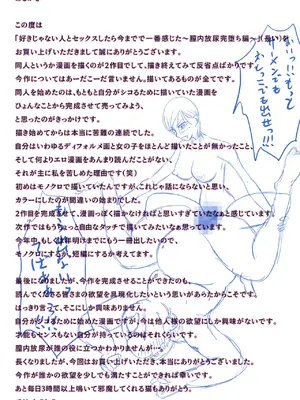 この度は
「好きじゃない人とセックスしたら今までで一番感じた～膣内放尿完堕ち編～」(長い)を
お買い上げいただきまして誠にありがとうございます。
同人というか漫画を描くのが2作目でして、描き終えてみて反省点ばかりです。
今作についてはあーだこーだ言いません。描いてあるものが全てです。
同人を始めたのは、もともと自分がシコるために描いていた漫画を
ひょんなことから完成させて売ってみよう、
と思ったのがきっかけです。
描き始めてからは本当に苦難の連続でした。
自分はいわゆるディフォルメ画と女の子をほとんど描いたことがなかったこと、
そして何よりエロ漫画をあんまり読んだことがない、
それが主に私を苦しめた理由です(笑)
初めはモノクロで描いていたんですが、これじゃ話にならないと思い、
カラーにしたのが間違いの始まりでした。
2作目を完成させて、漫画っぽく描かなければと思いすぎていたなぁと感じています。
次作ではもうちょっと自由なタッチで描いてみたいなぁ思っています。
今年中、もしくは年明けまでにもう一冊出したいので、
モノクロにするか、短編にするか考えてます。
最後になりましたが、今作を完成させることができたのも、
読んでくださる皆さまの欲望を具現化したいという思いがあったからこそです。
はっきりいって、そこにしか興味ありません。
自分がシコるために始めた漫画ですが、今は他人様の欲望にしか興味がないです。
才能もセンスもない自分が持っているのはそれくらいです。
膣内放尿が誰の役に立つかわかりませんが…。
長くなりましたが、今回はお買い上げいただき、本当にありがとうございました。
今作が誰かの欲望を少しでも満たすことができれば幸いです。
あと毎日3時間以上鳴いて邪魔してくれる猫もありがとう。